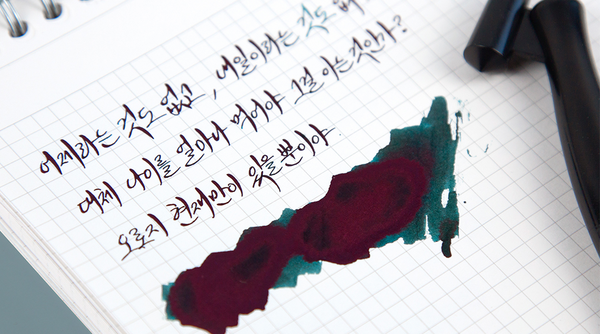 어제라는 것도 없고, 내일이라는 것도 없
대체 나이를 얼마나 먹어야 그걸 아는것인가?
오로지 현재만이 있을 뿐이야